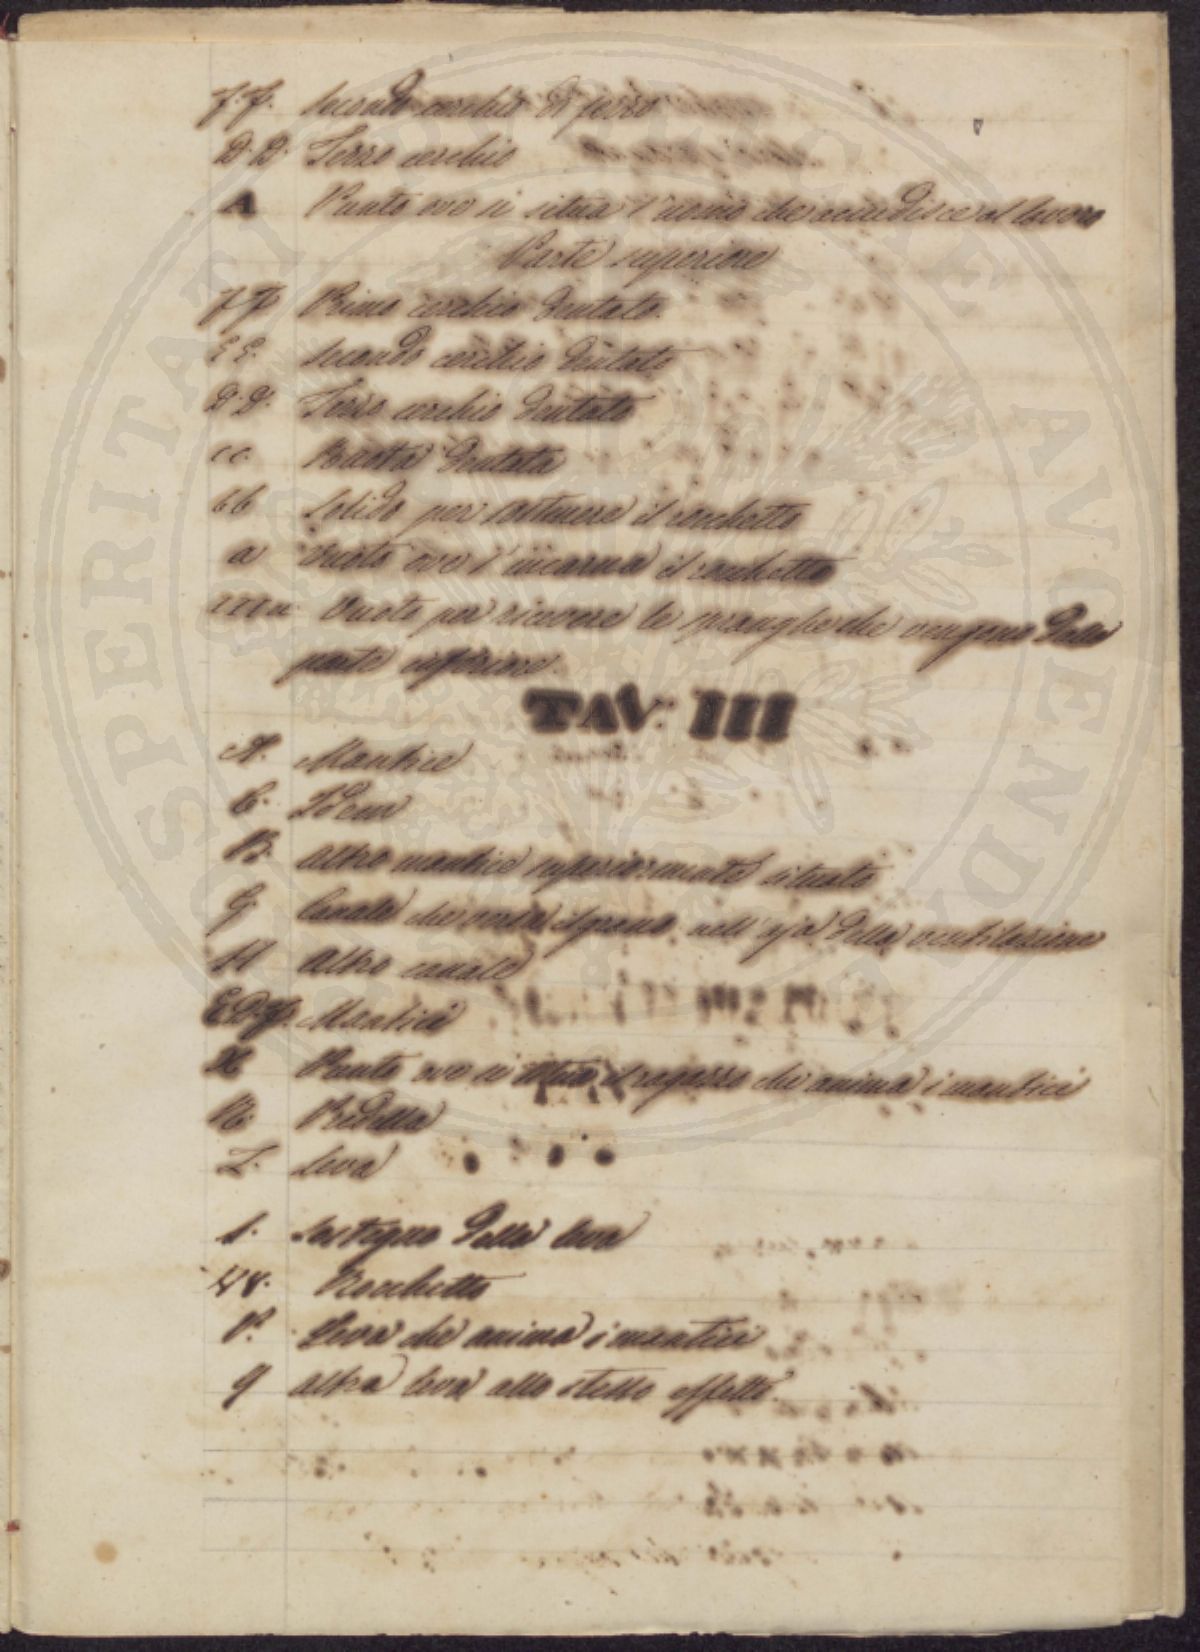 f.f. Secondo cerchio di ferro
D.D. Terzo cerchio
A Punto ove si situa l'uomo che accudisce al lavoro
Parte superiore
f.f. Primo cerchio dentato.
E E. Secondo cerchio dentato
D.D. Terzo cerchio dentato
cc. Ruota dentata
bb Solido per sostenere il rocchetto
a Vuoto ove s'incarna il rocchetto
Vuoto per ricevere le spranghe che vengono dalla
parte inferiore.
TAV: III
A. Mantice
C. Idem
B. altro mantice superiormente situato
G Canale che versa il grano nell'aja della ventilazione
H altro canale
E.D.F. Mantici
X Punto ove si situa il ragazzo che anima i mantici
N. Pedella
L. Leva
S. Sostegno della leva
Rocchetto
P. Leva che anima i mantici
q altra leva allo stesso effetto.
SOSPERITATI PUBLICAE AVGENDAE